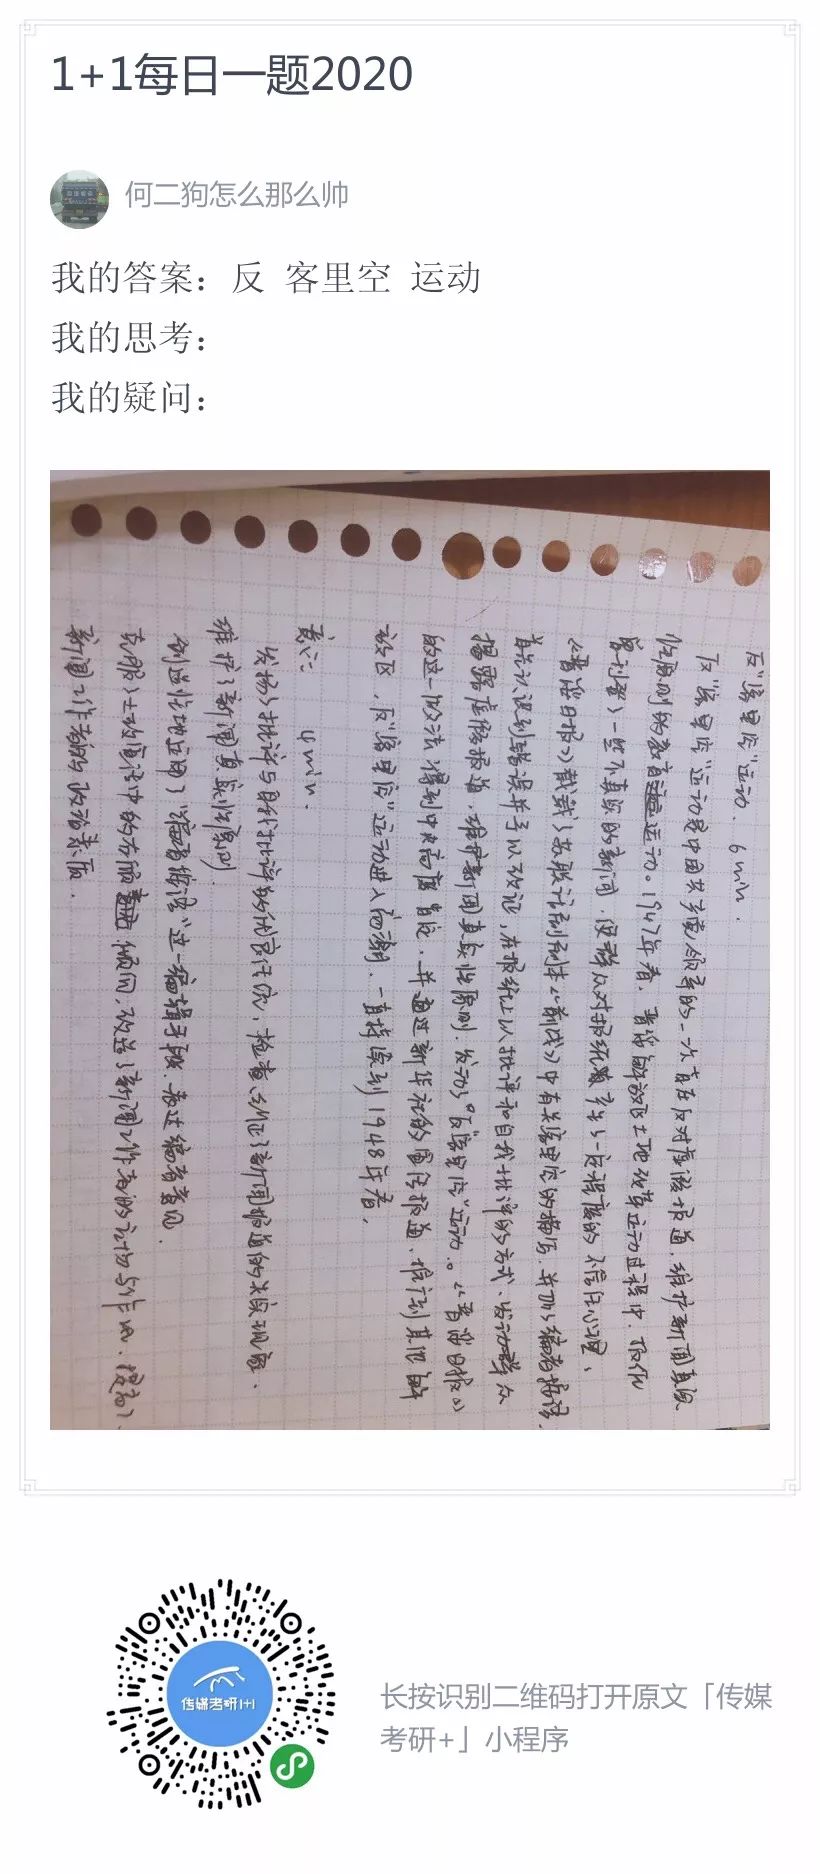 1+1每日一题2020
何二狗怎么那么帅
我的答案：反 客里空 运动
我的思考：
我的疑问：
反“客里空”运动. 6min.
反“客里空”运动是中国共产党领导的一次旨在反对虚假报道，维护新闻真实
性原则的教育运动。1947年春，晋绥解放区土地改革运动过程中，
一些不真实的新闻，使群众对报纸产生了一定程度的不信任心理，
《晋绥日报》载了苏联《前线》中有关客里空的描写，并加编者按，
认识到错误并予以改正，在报纸上以批评和自我批评的方式，发动群众
揭露虚假报道，维护新闻真实性原则，发动了“反客里空”运动。《晋绥日报》
的这一做法得到中央高度肯定，并通过新华社的报道，推行到其他解
放区，反“客里空”运动进入高潮，一直持续到1948年春。
意义：4min.
发扬了批评与自我批评的优良传统，检查、纠正了新闻报道的失实现象.
维护了新闻真实性原则.
创造性地运用了“编者按语”这一编辑手段，表达编者意见.
克服土改宣传中的右倾倾向，改造了新闻工作者的立场与作风，提高了
新闻工作者的政治素质.
长按识别二维码打开原文「传媒
考研+」小程序
传媒考研1+1